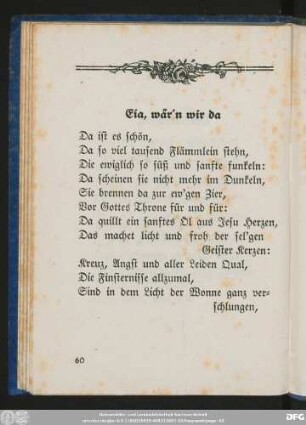 Eia, wär'n wir da
Da ist es schön,
Da so viel tausend Flämmlein stehn,
Die ewiglich so süß und sanfte funkeln:
Da scheinen sie nicht mehr im Dunkeln,
Sie brennen da zur ew'gen Zier,
Vor Gottes Throne für und für:
Da quillt ein sanftes Öl aus Jesu Herzen,
Das machet licht und froh der sel'gen
Geister Kerzen:
Kreuz, Angst und aller Leiden Qual,
Die Finsternisse allzumal,
Sind in dem Licht der Wonne ganz ver-
schlungen,
60